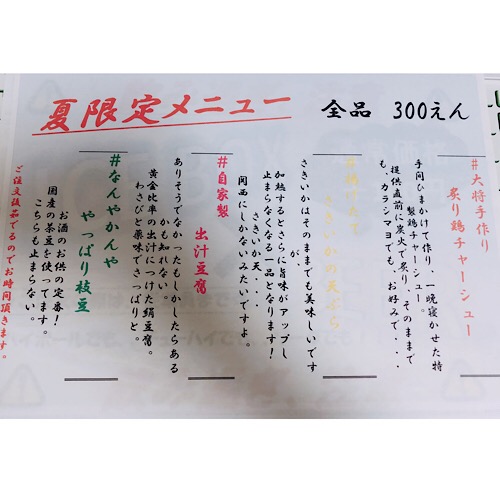 夏限定メニュー
全品 300えん
#大将手作り
炙り鶏チャーシュー
手間ひまかけて作り、一晩寝かせた特
製鶏チャーシュー。
提供直前に炭火で炙り、そのままで
も、カラシマヨでも、お好みで・・・
#揚げたて
さきいかの天ぷら
さきいかはそのままでも美味しいです
が、
加熱するとさらに旨味がアップし
止まらなくなる一品となります!
さきいか天・・
関西にしかないみたいですよ。
#自家製
出汁豆腐
ありそうでなかったもしかしたらある
かも知れない。
黄金比率の出汁につけた絹豆腐。
わさびと薬味でさっぱりと。
#なんやかんや
やっぱり枝豆
お酒のお供の定番!
国産の茶豆を使ってます。
こちらも止まらない。
ご注文後茹でるのでお時間頂きます。